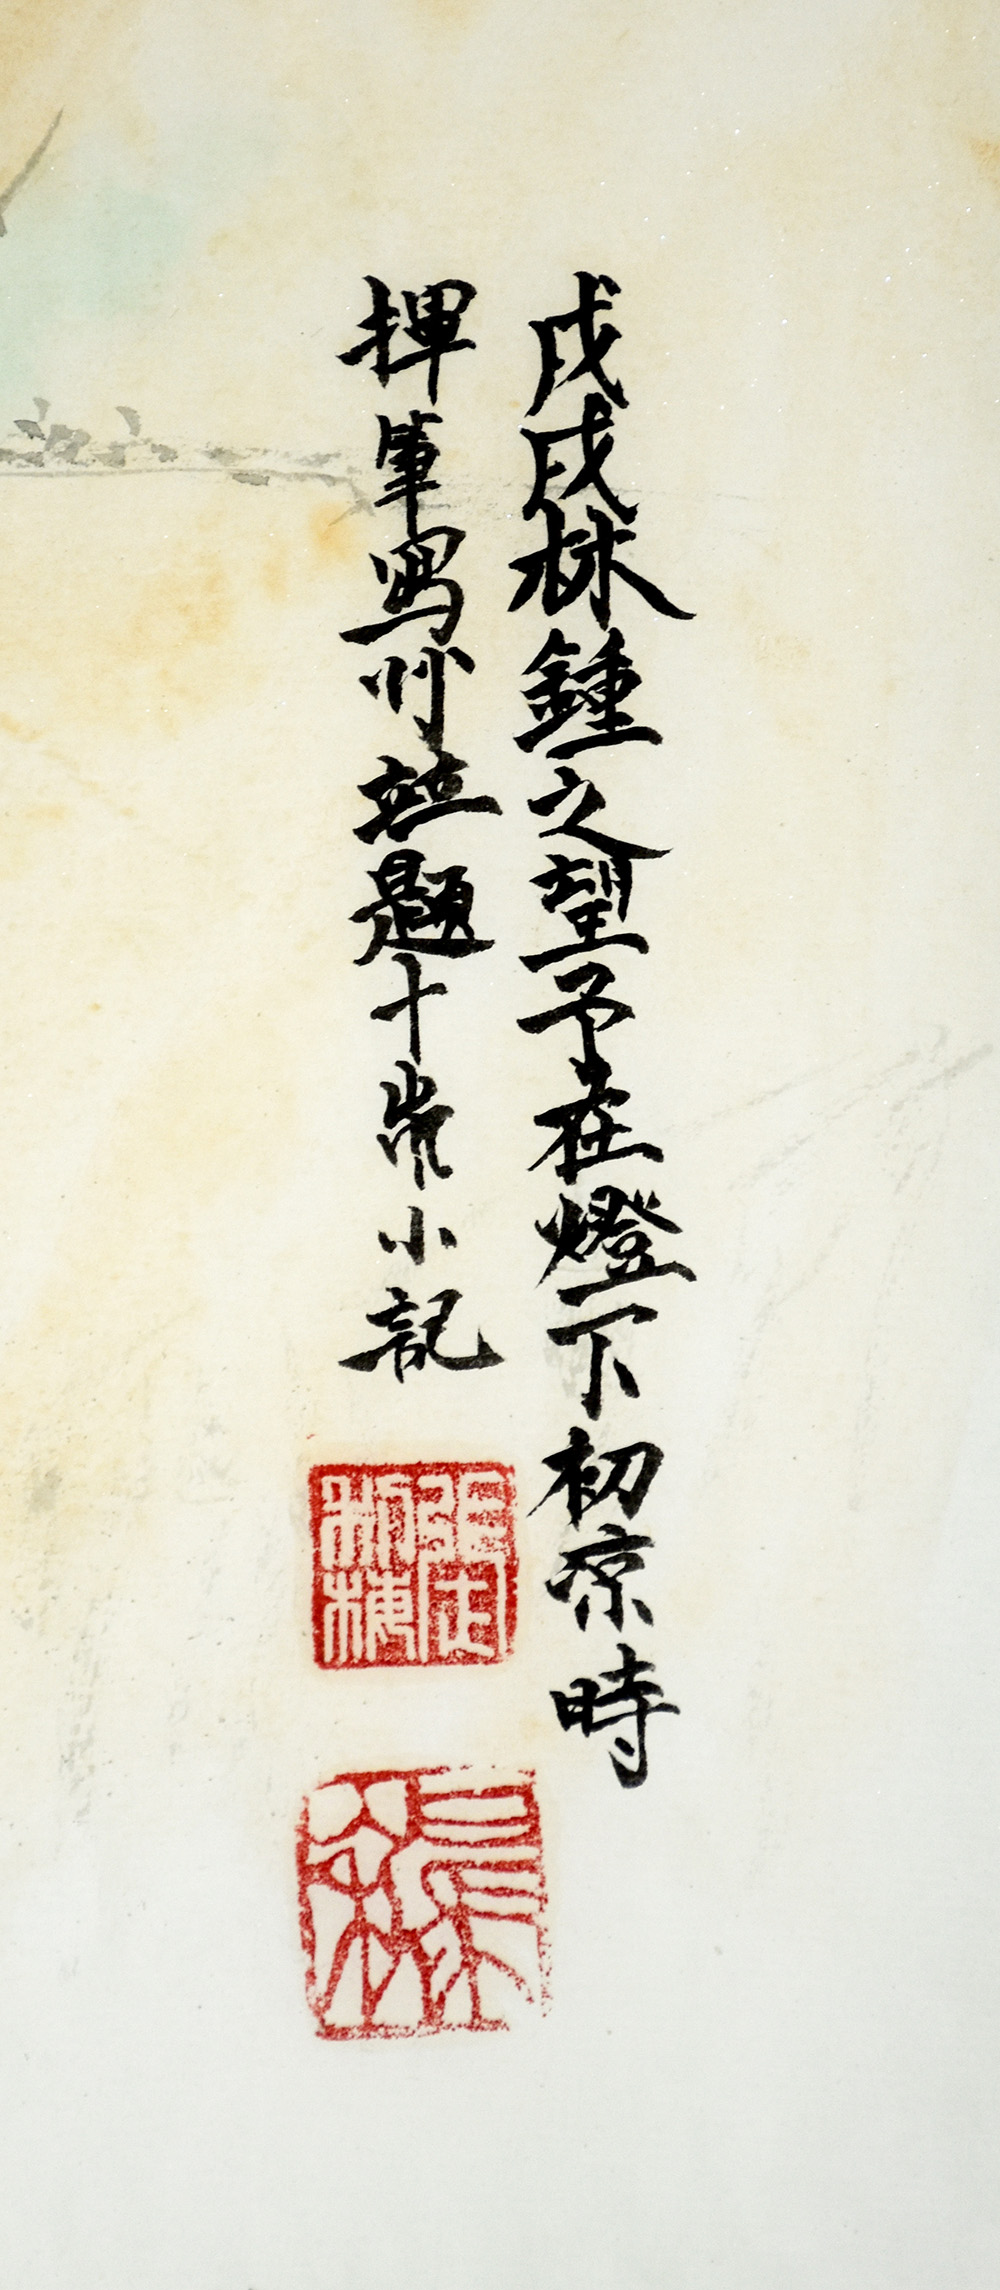 戊戌林鍾之望予在燈下初涼時
揮筆寫竹並題十岽小記